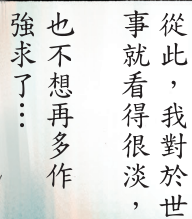 從此，我對於世
事就看得很淡，
也不想再多作
強求了…